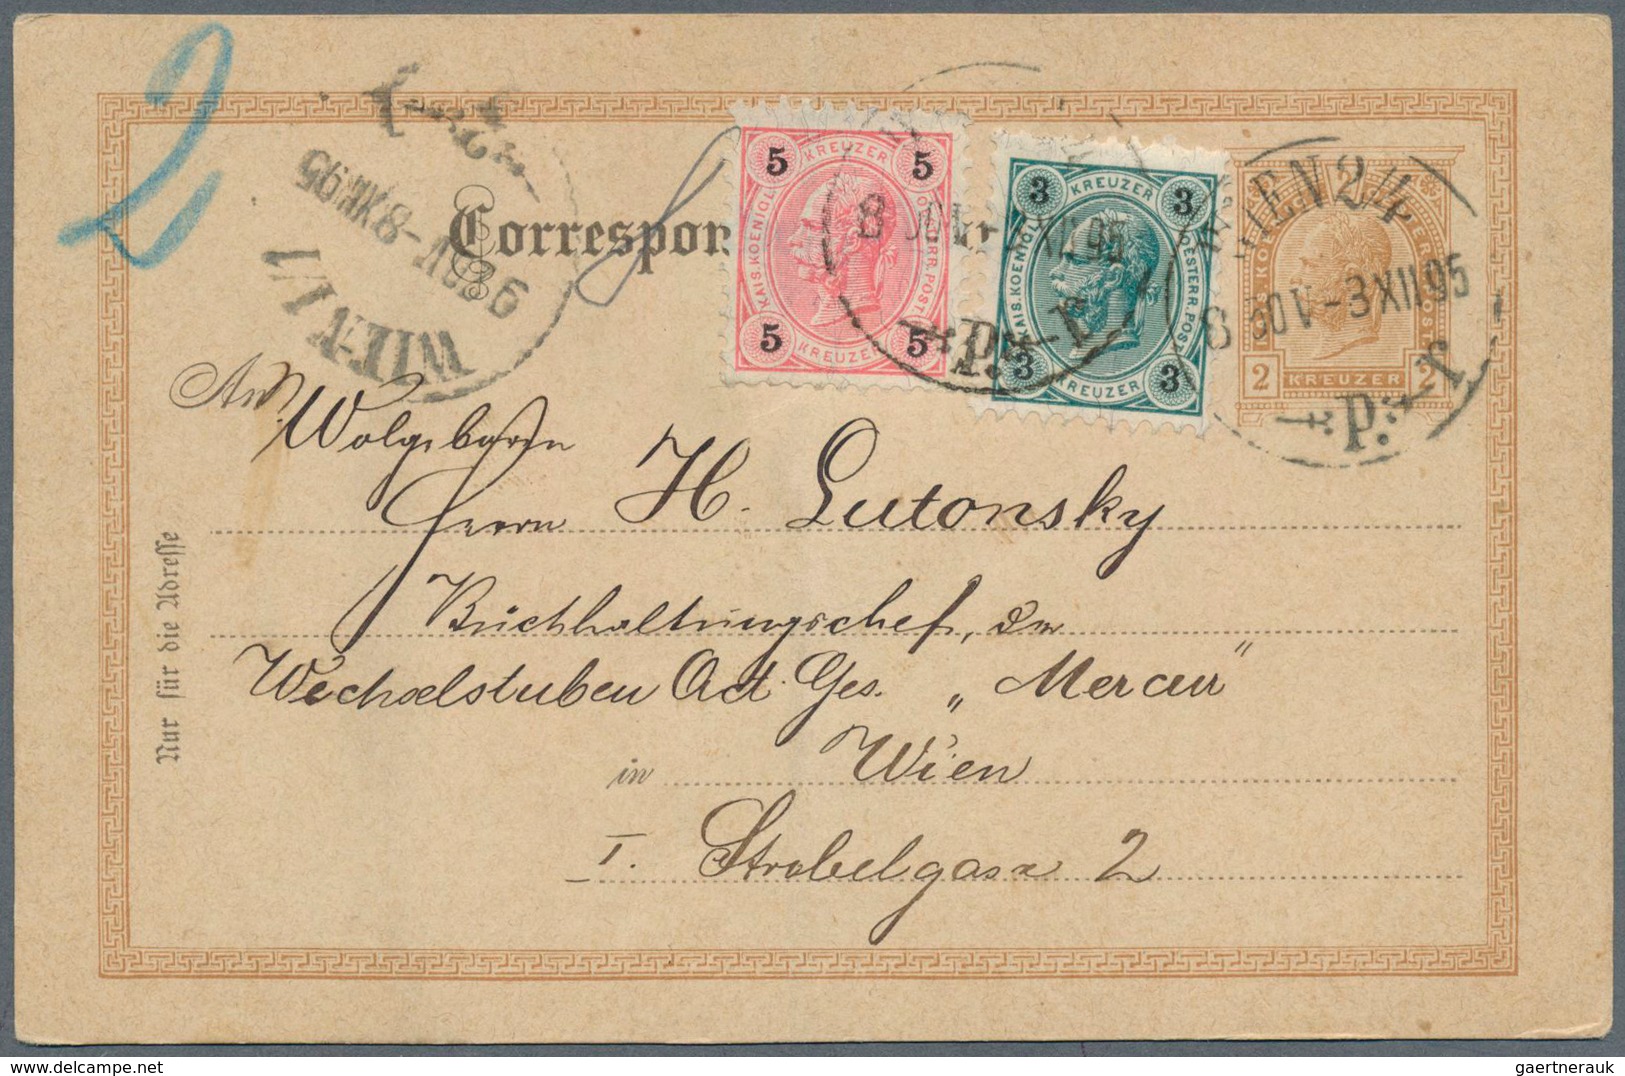 2
WIEN 1/1
9 50V -3XII 95
Correspon
5 KREUZER 5
KAIS. KOENIGL. OESTERR. POST
5 KREUZER 5
3 KREUZER 3
KAIS. KOENIGL. OESTERR. POST
3 KREUZER 3
8 50V XII 95
P.
WIEN 24
8 50V -3XII95
P.
2 KREUZER 2
An
Wolgeboren
Herrn H. Lutonsky
Buchhaltungschef, der
Wechselstuben Act. Ges. „Mercur"
in Wien
I. Strobelgasse 2
Nur für die Adresse
gaertnerauk
delcampe.net